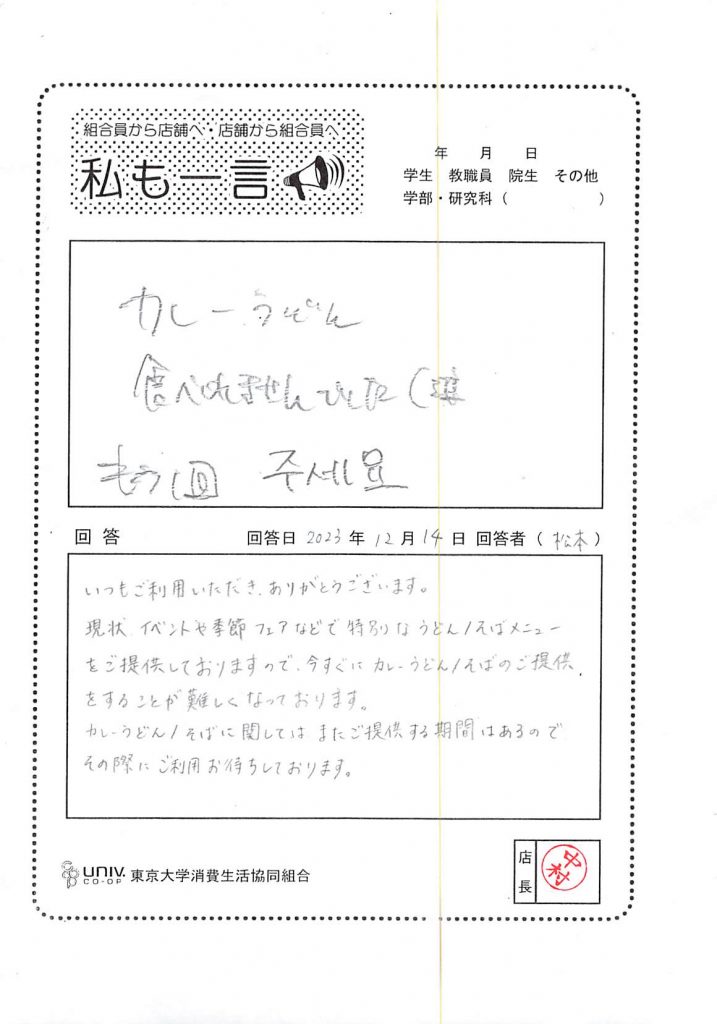 組合員から店舗へ・店舗から組合員へ
私も一言
年 月 日
学生 教職員 院生 その他
学部・研究科（ ）
カレーうどん
食べれませんでした（涙
もう1回 주세요
回答 回答日 2023 年 12 月 14 日 回答者（松本）
いつもご利用いただき、ありがとうございます。
現状 イベントや季節フェアなどで特別なうどん/そばメニュー
をご提供しておりますので、今すぐにカレーうどん/そばのご提供
をすることが難しくなっております。
カレーうどん/そばに関しては またご提供する期間はあるので
その際にご利用お待ちしております。
UNIV.
CO-OP
東京大学消費生活協同組合
店長
中村